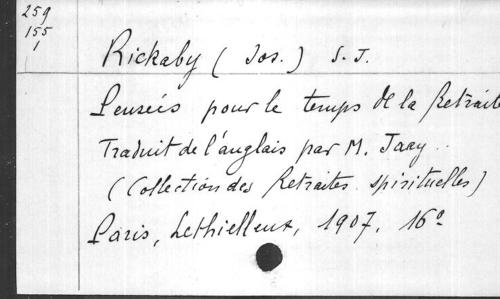 259
155
1
Rickaby ( Jos. ) S. J.
Pensées pour le temps de la Retraite
Traduit de l'anglais par M.
( Collection des Retraites spirituelles )
Paris, Lethielleux, 1907, 16º